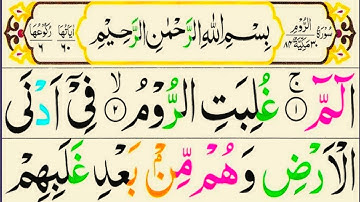 سُوْرَةُ الرُّوْمِ
بِسْمِ اللهِ الرَّحْمٰنِ الرَّحِيْمِ
اٰيَاتُهَا ٦٠ رُكُوْعُهَا ٦
الٓمّٓ ۚ ١ غُلِبَتِ الرُّوْمُ ۙ ٢ فِيْٓ اَدْنَى
الْاَرْضِ وَهُمْ مِّنْۢ بَعْدِ غَلَبِهِمْ